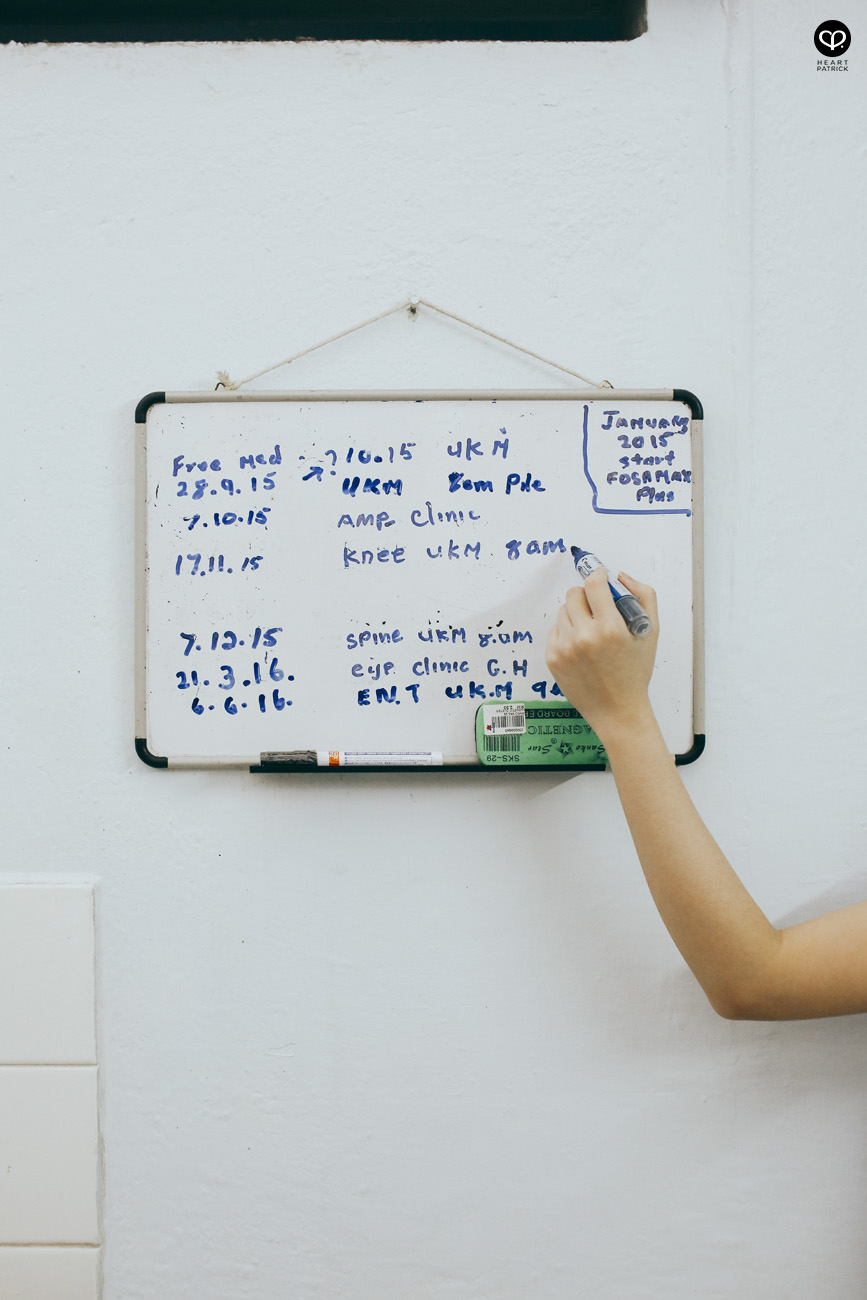 HEART
PATRICK
JANUARY
2015
start
FOSAMAX
Plus
Free Med - ? 10.15 UKM
28.9.15 UKM 8am Pile
7.10.15 AMP Clinic
17.11.15 knee UKM 8am
7.12.15 spine UKM 8.am
21.3.16. eye clinic G.H
6.6.16. EN.T UK.M
BOARD
MAGNETIC
Sanko Star
SKS-29